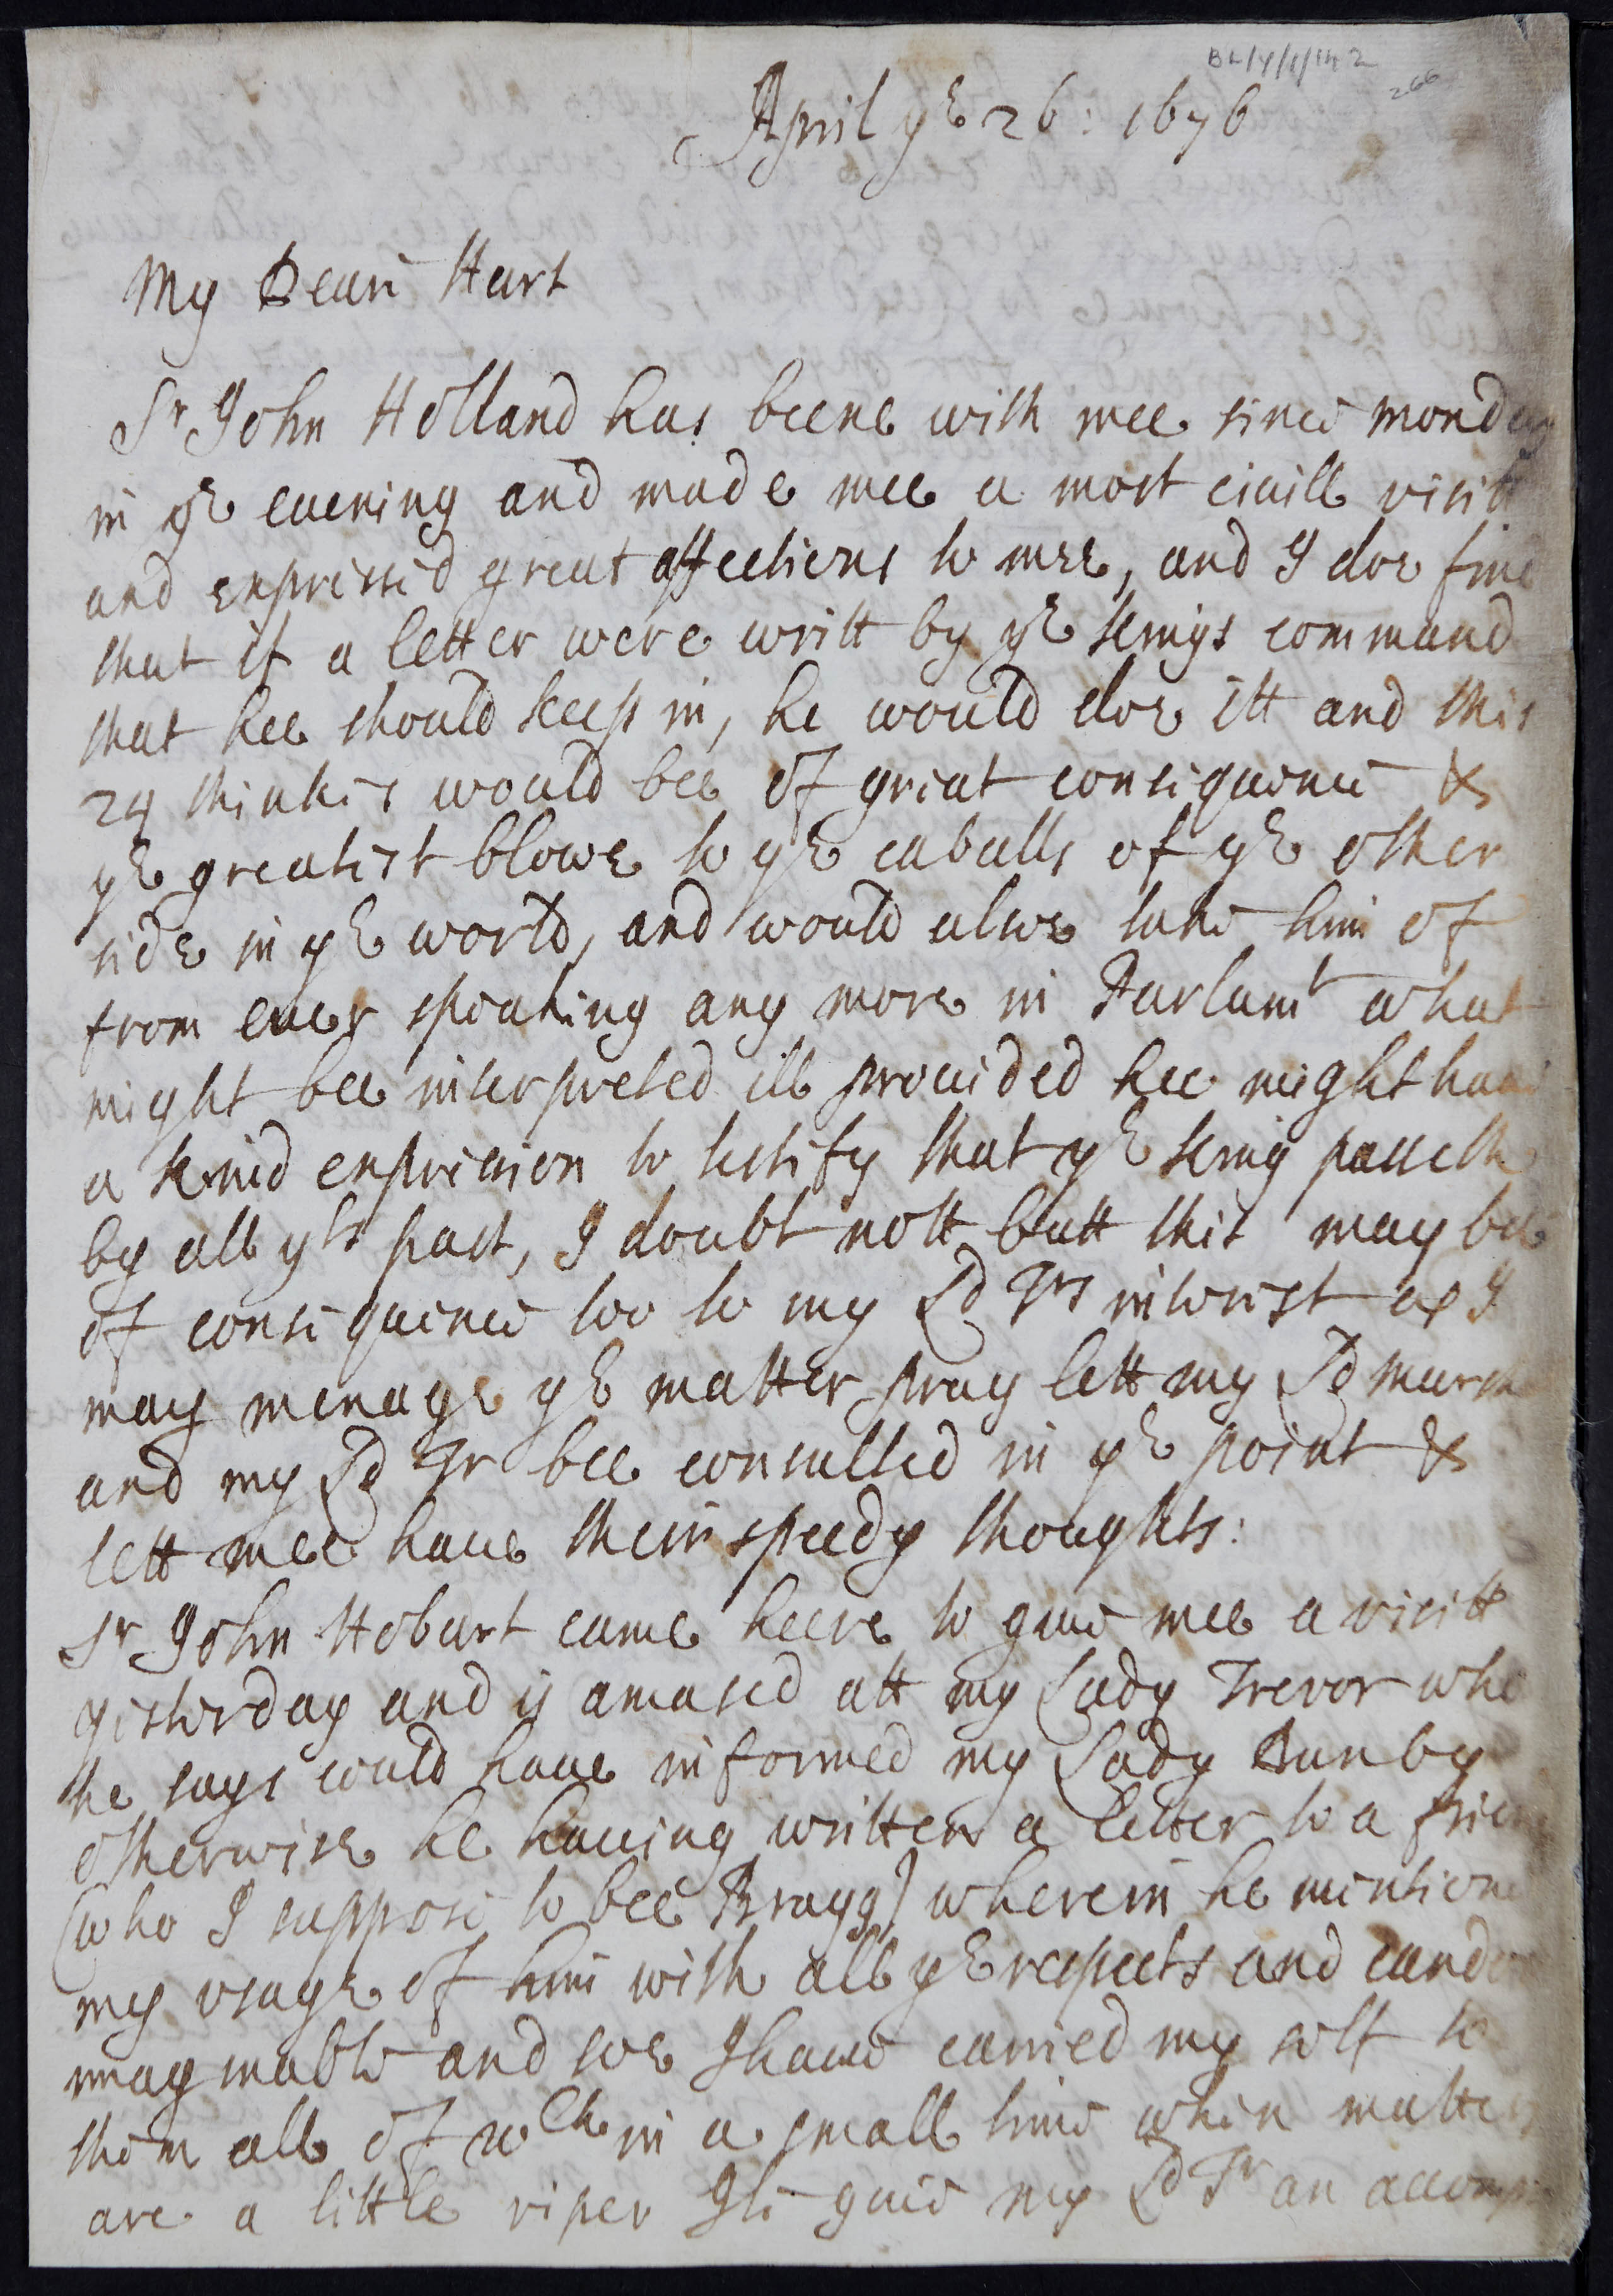 BL/Y/1/142
266
April ye 26: 1676
My Deare Hart
Sr John Holland has beene with mee since monday
in ye euening and made mee a most ciuill visitt
and expressed great affections to mee, and I doe find
that if a letter were writt by ye kings command
that hee should keep in, he would doe itt and this
24 thinkes would bee of great consequence &
ye greatest blowe to ye caballs of ye other
side in ye world, and would alsoe take him of
from euer speaking any more in Parlamt what
might bee interpreted ill prouided hee might haue
a kind expression to testify that ye king passeth
by all yts past, I doubt nott butt this may bee
of consequence too to my Ld Trs interest as I
may menage ye matter pray lett my Ld
and my Ld Tr bee consulted in ye point &
lett mee haue their speedy thoughts:
Sr John Hobart came heere to giue mee a visitt
yesterday and is amased att my Lady Trevor who
he says could haue informed my Lady Danby
otherwise he hauing written a letter to a friend
(who I suppose to bee Bragg) wherein he mentioned
my vsage of him with all ye respects and
imaginable and soe I haue carried my self to
them all of wch in a small time when matters
are a little riper Ile giue my Ld Tr an